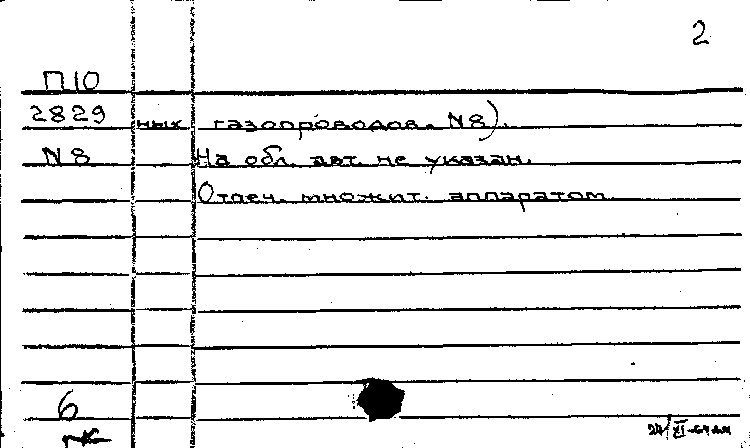 2
П10
2829 ных газопроводов. N8).
N8 На обл. авт. не указан.
Отпеч. множит. аппаратом
6